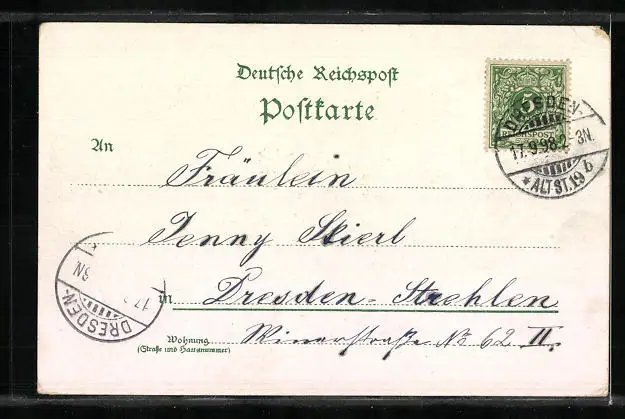 Deutsche Reichspost
Postkarte
An
Fräulein
Jenny Skierl
in Dresden-Strehlen
Wohnung
(Straße und Hausnummer)
Wienerstraße No 62 II.
5
REICHSPOST
DRESDEN-
17.9.98.2-3N.
* ALTST.19 b
DRESDEN-
17.
6N